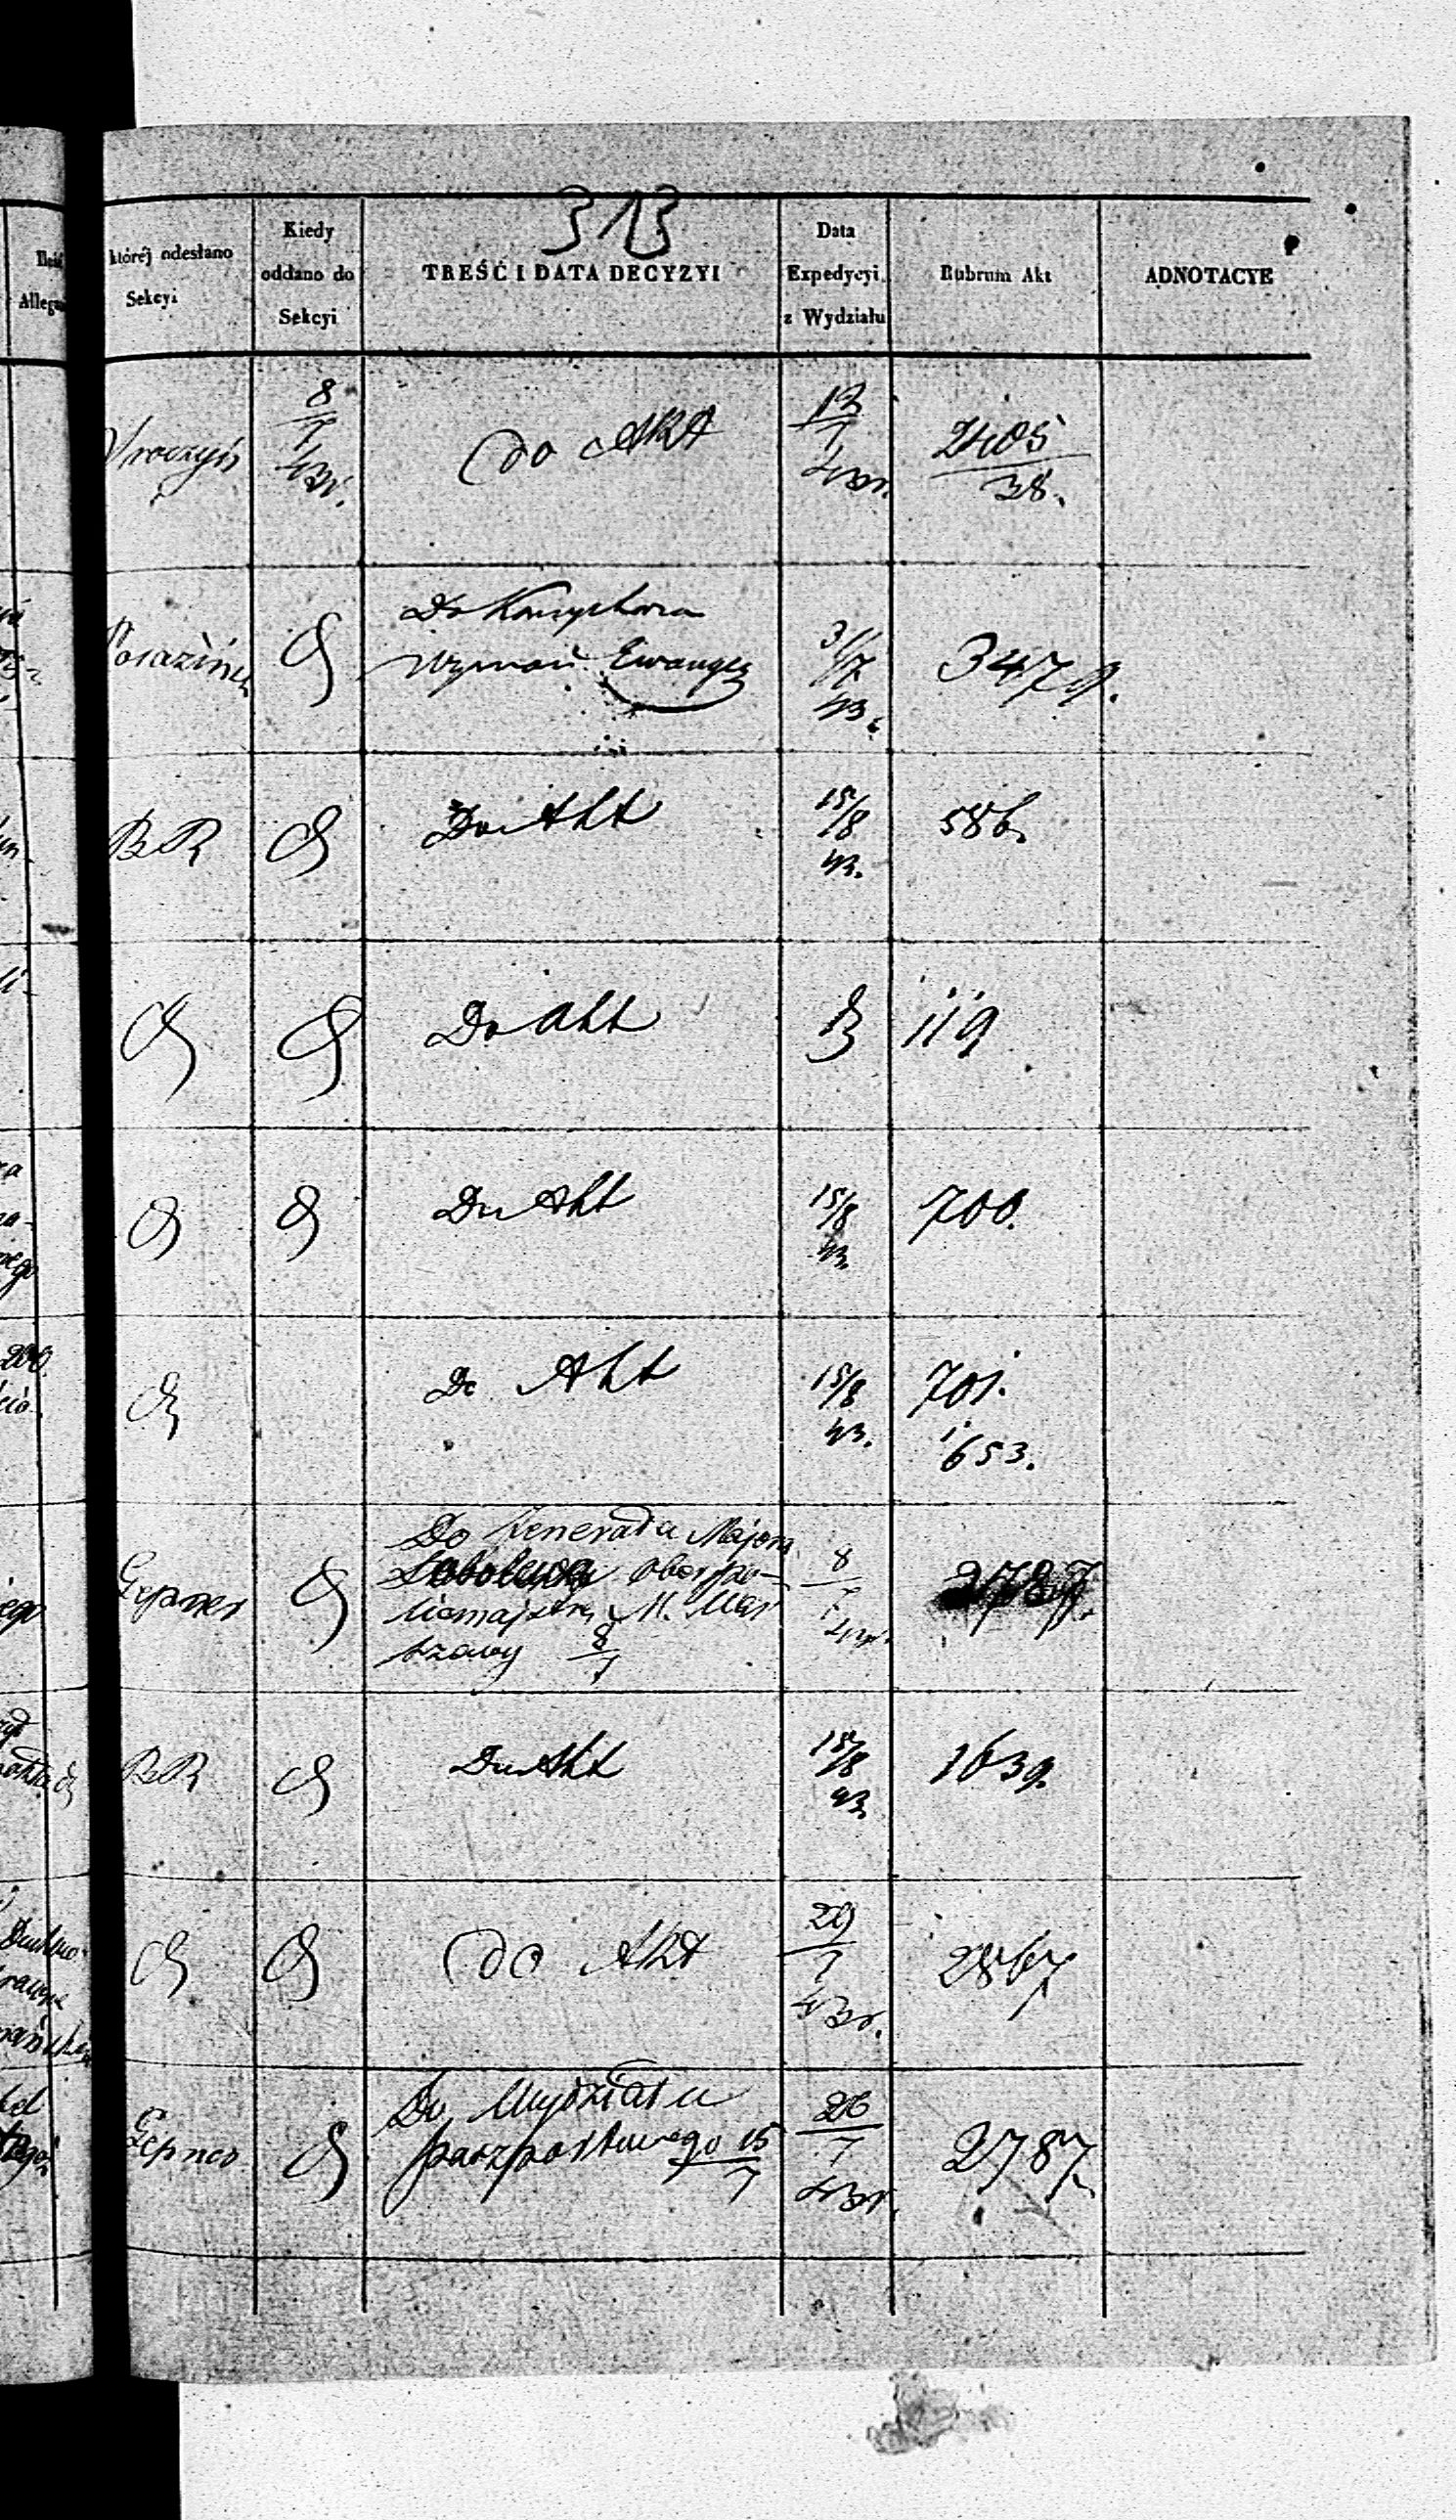 313
któréj odesłano
Sekcyi
Kiedy
oddano do
Sekcyi
TREŚĆ I DATA DECYZYI
Data
Expedycyi
z Wydziału
Rubrum Akt
ADNOTACYE
8/7 43r.
Do Akt
13/7 43r.
2405/38.
Do
Wyznań Ewangel
31/7 43.
3479.
BR
Do Akt
15/8 43.
586.
Do Akt
119
Do Akt
15/8 43.
700.
Do Akt
15/8 43.
701.
1653.
Gepner
Do Generała Majora
Sobolewa Oberpo-
licmajstra M. War
szawy 8/7
8/7 43r.
2787.
BR
Do Akt
15/8 43.
1639.
Do Akt
29/7 43r.
2867
Gepner
Do Wydziału
paszportowego 15/7
26/7 43r.
2787.